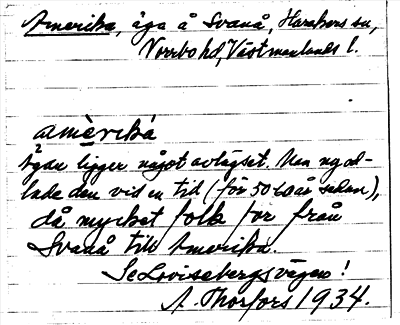 Amerika, äga å Svanå, Harakers sn,
Norrbo hd, Västmanlands l.
amèrika
Ägan ligger något avlägset. Man nyod-
lade den vid en tid (för 50 à 60 år sedan),
då mycket folk for från
Svanå till Amerika.
Se Lovisebergsvägen!
A. Thorfors 1934.